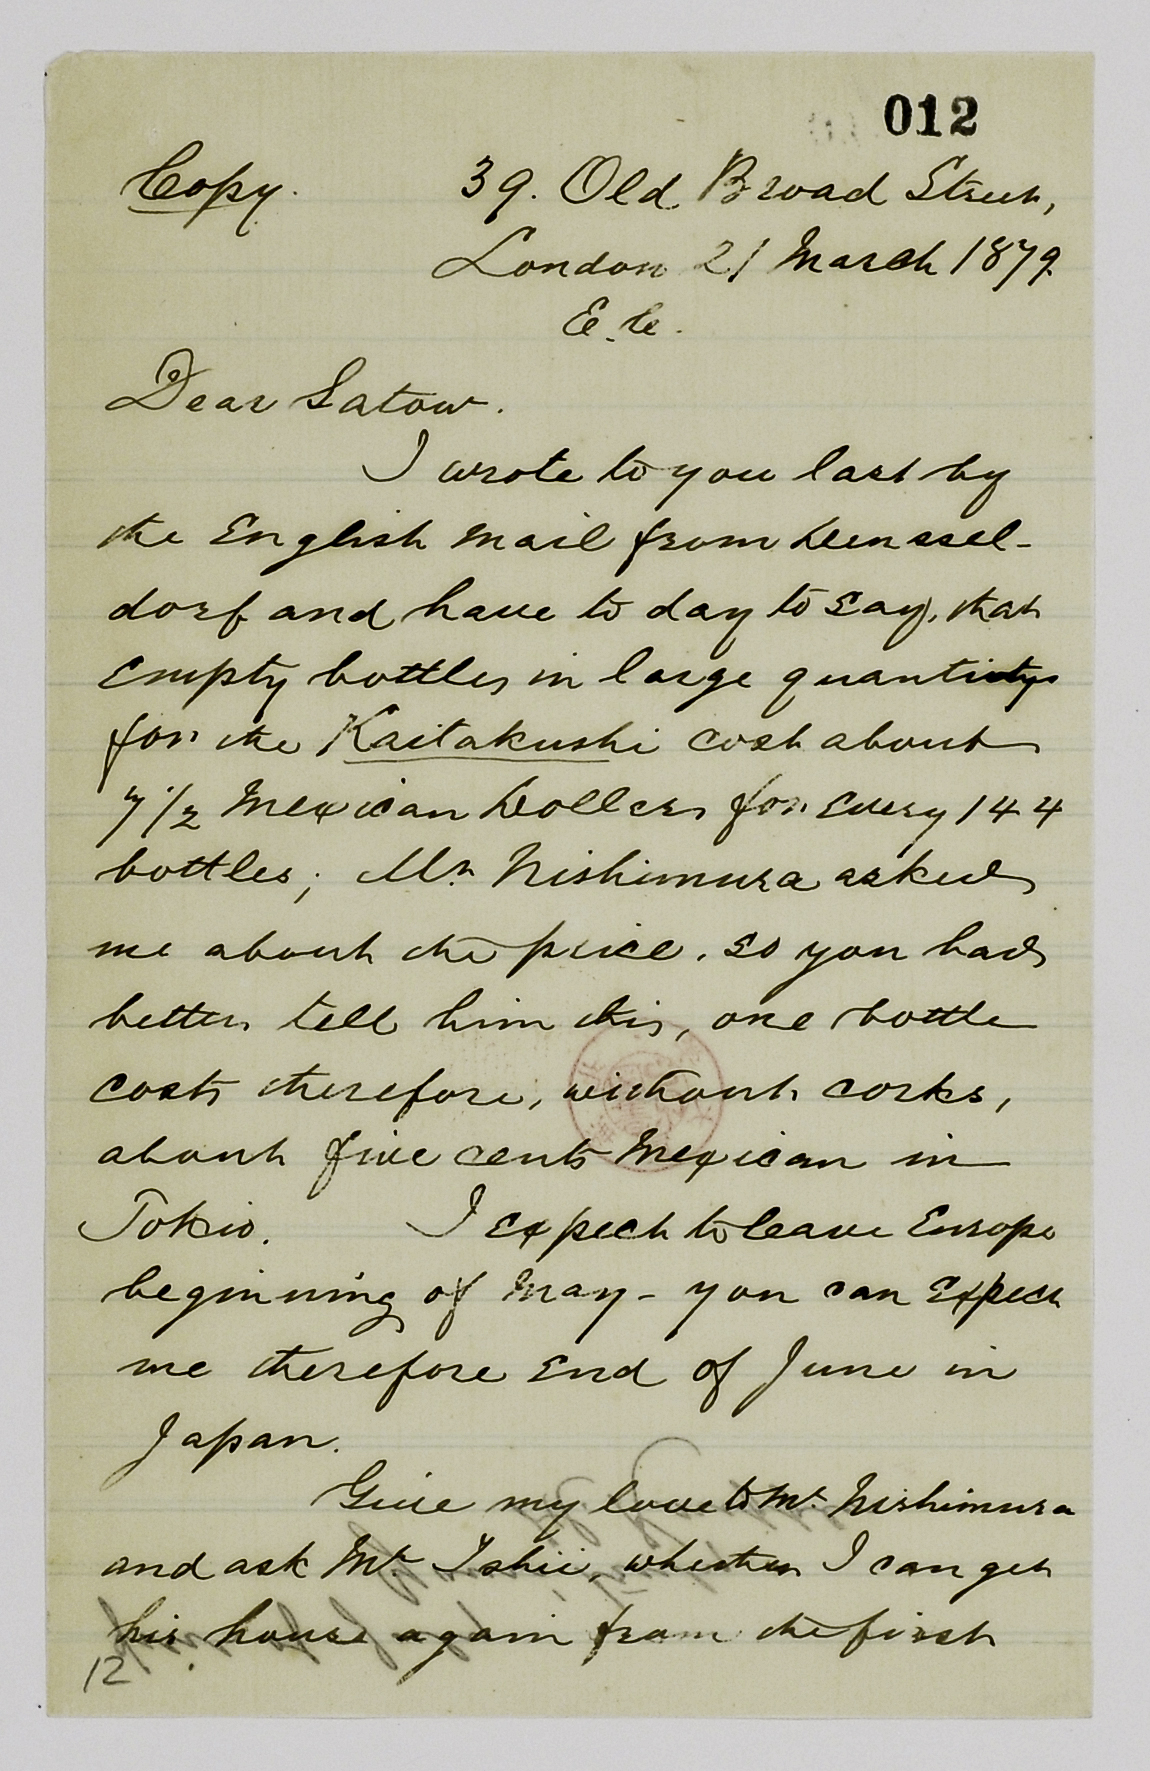 012
Copy. 39. Old Broad Street,
London 21 March 1879.
E. C.
Dear Satow.
I wrote to you last by
the English Mail from Duessel-
dorf and have to day to say, that
empty bottles in large quantitys
for the Kaitakushi cost about
7 1/2 Mexican Dollers for every 144
bottles; Mr. Nishimura asked
me about the price. so you had
better tell him this, one bottle
costs therefore, without corks,
about five cents Mexican in
Tokio. I expect to leave Europe
beginning of May - you can expect
me therefore end of June in
Japan.
Give my love to Mr. Nishimura
and ask Mr. Ishii, whether I can get
his house again from the first
12